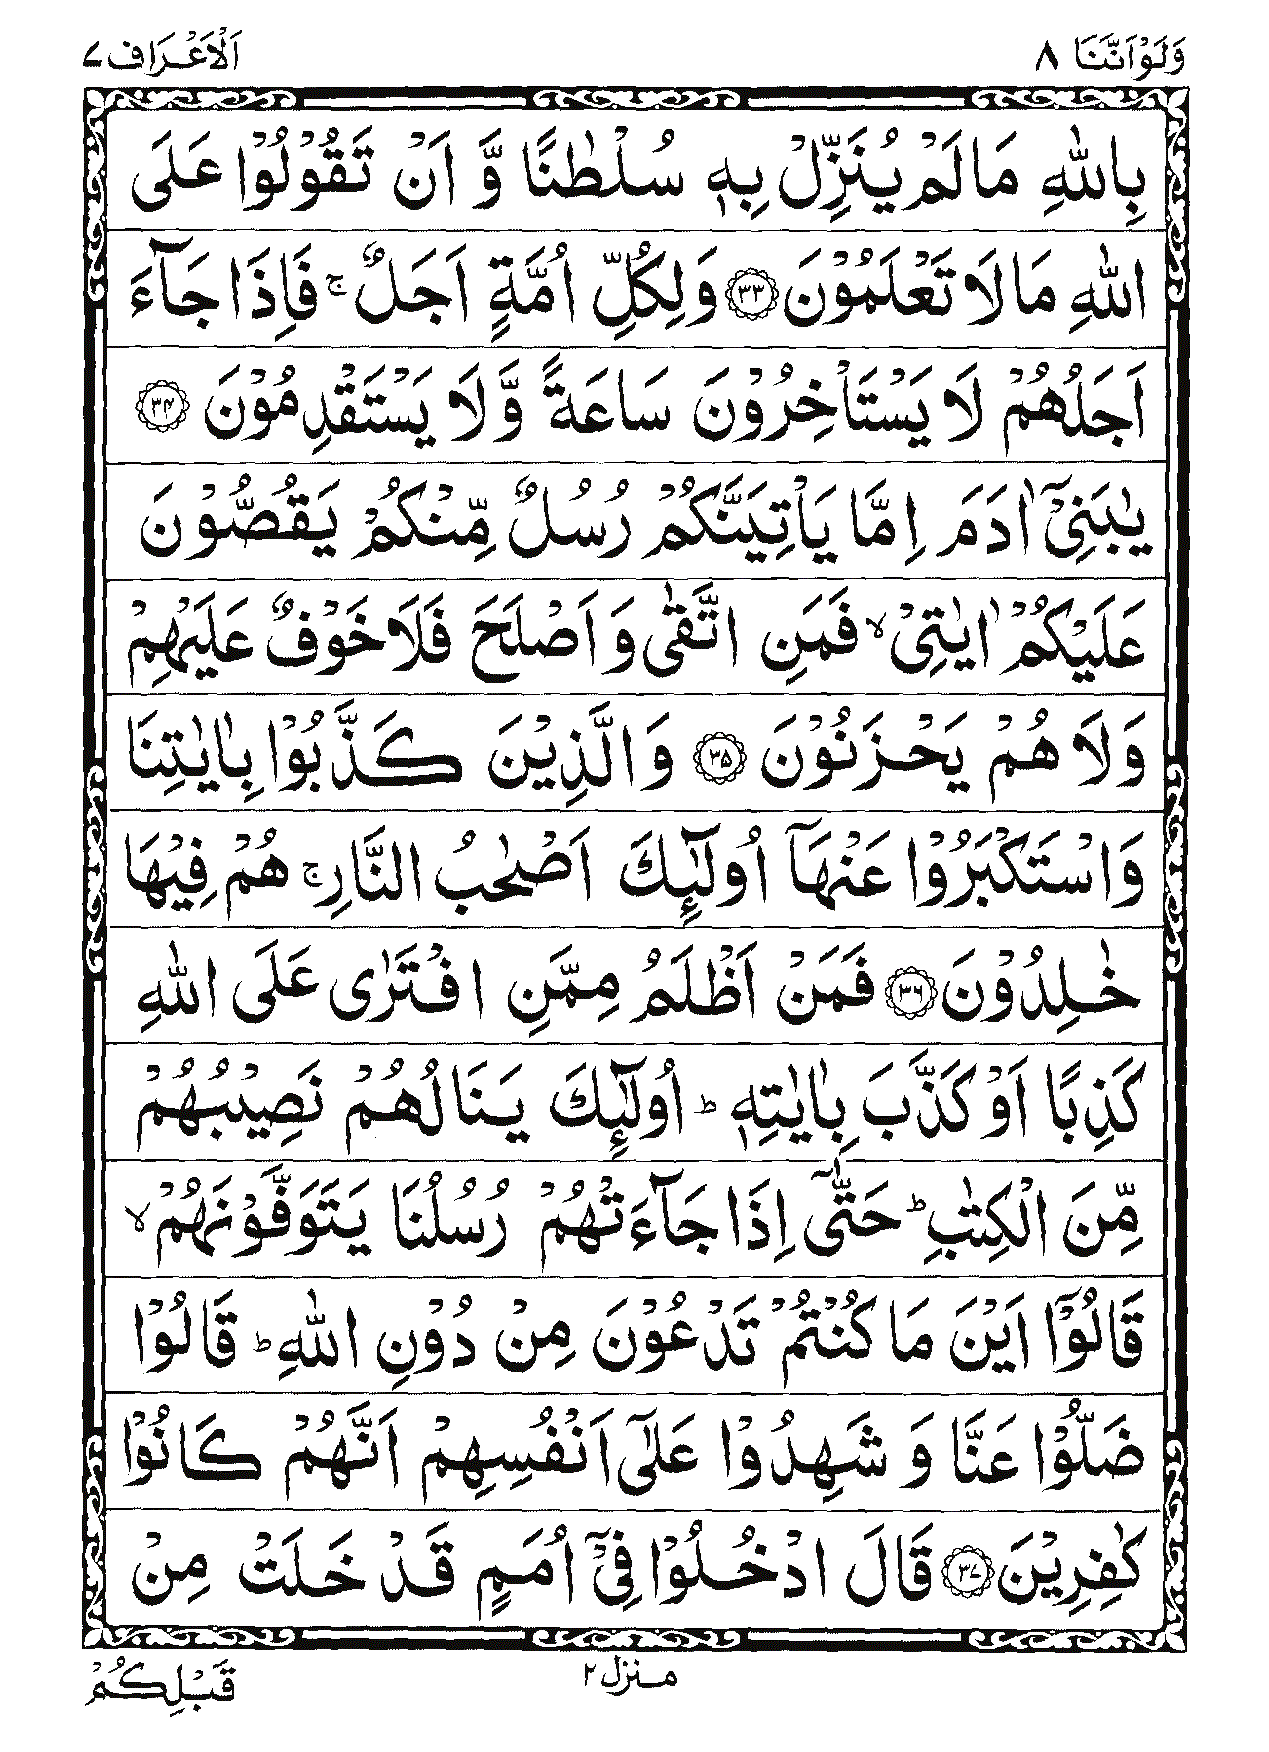 وَلَوْاَنَّنَا ٨
اَلْاَعْرَاف ٧
بِاللّٰهِ مَا لَمْ يُنَزِّلْ بِهٖ سُلْطٰنًا وَّ اَنْ تَقُوْلُوْا عَلَى
اللّٰهِ مَا لَا تَعْلَمُوْنَ ﴿٣٣﴾ وَلِكُلِّ اُمَّةٍ اَجَلٌ ۚ فَاِذَا جَآءَ
اَجَلُهُمْ لَا يَسْتَاْخِرُوْنَ سَاعَةً وَّلَا يَسْتَقْدِمُوْنَ ﴿٣۴﴾
يٰبَنِيْٓ اٰدَمَ اِمَّا يَاْتِيَنَّكُمْ رُسُلٌ مِّنْكُمْ يَقُصُّوْنَ
عَلَيْكُمْ اٰيٰتِيْ ۙ فَمَنِ اتَّقٰى وَاَصْلَحَ فَلَا خَوْفٌ عَلَيْهِمْ
وَلَا هُمْ يَحْزَنُوْنَ ﴿٣۵﴾ وَالَّذِيْنَ كَذَّبُوْا بِاٰيٰتِنَا
وَاسْتَكْبَرُوْا عَنْهَآ اُولٰٓئِكَ اَصْحٰبُ النَّارِ ۚ هُمْ فِيْهَا
خٰلِدُوْنَ ﴿٣٦﴾ فَمَنْ اَظْلَمُ مِمَّنِ افْتَرٰى عَلَى اللّٰهِ
كَذِبًا اَوْ كَذَّبَ بِاٰيٰتِهٖ ؕ اُولٰٓئِكَ يَنَالُهُمْ نَصِيْبُهُمْ
مِّنَ الْكِتٰبِ ؕ حَتّٰٓى اِذَا جَآءَتْهُمْ رُسُلُنَا يَتَوَفَّوْنَهُمْ ۙ
قَالُوْٓا اَيْنَ مَا كُنْتُمْ تَدْعُوْنَ مِنْ دُوْنِ اللّٰهِ ؕ قَالُوْا
ضَلُّوْا عَنَّا وَ شَهِدُوْا عَلٰٓى اَنْفُسِهِمْ اَنَّهُمْ كَانُوْا
كٰفِرِيْنَ ﴿٣٧﴾ قَالَ ادْخُلُوْا فِيْٓ اُمَمٍ قَدْ خَلَتْ مِنْ
منزل ٢
قَبْلِكُمْ